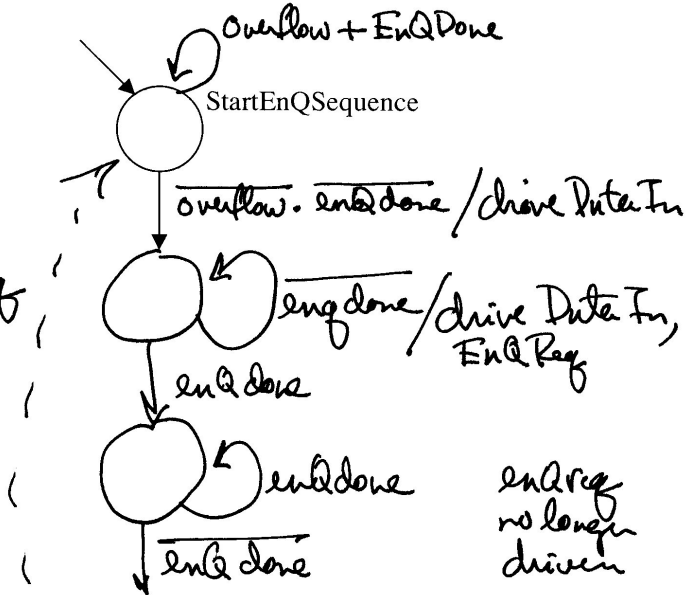 Overflow + EnQDone
StartEnQSequence
overflow . enQdone / drive Data In
enqdone / drive Data In,
EnQReq
enQdone
enQdone
enQreq
no longer
driven
enQ done